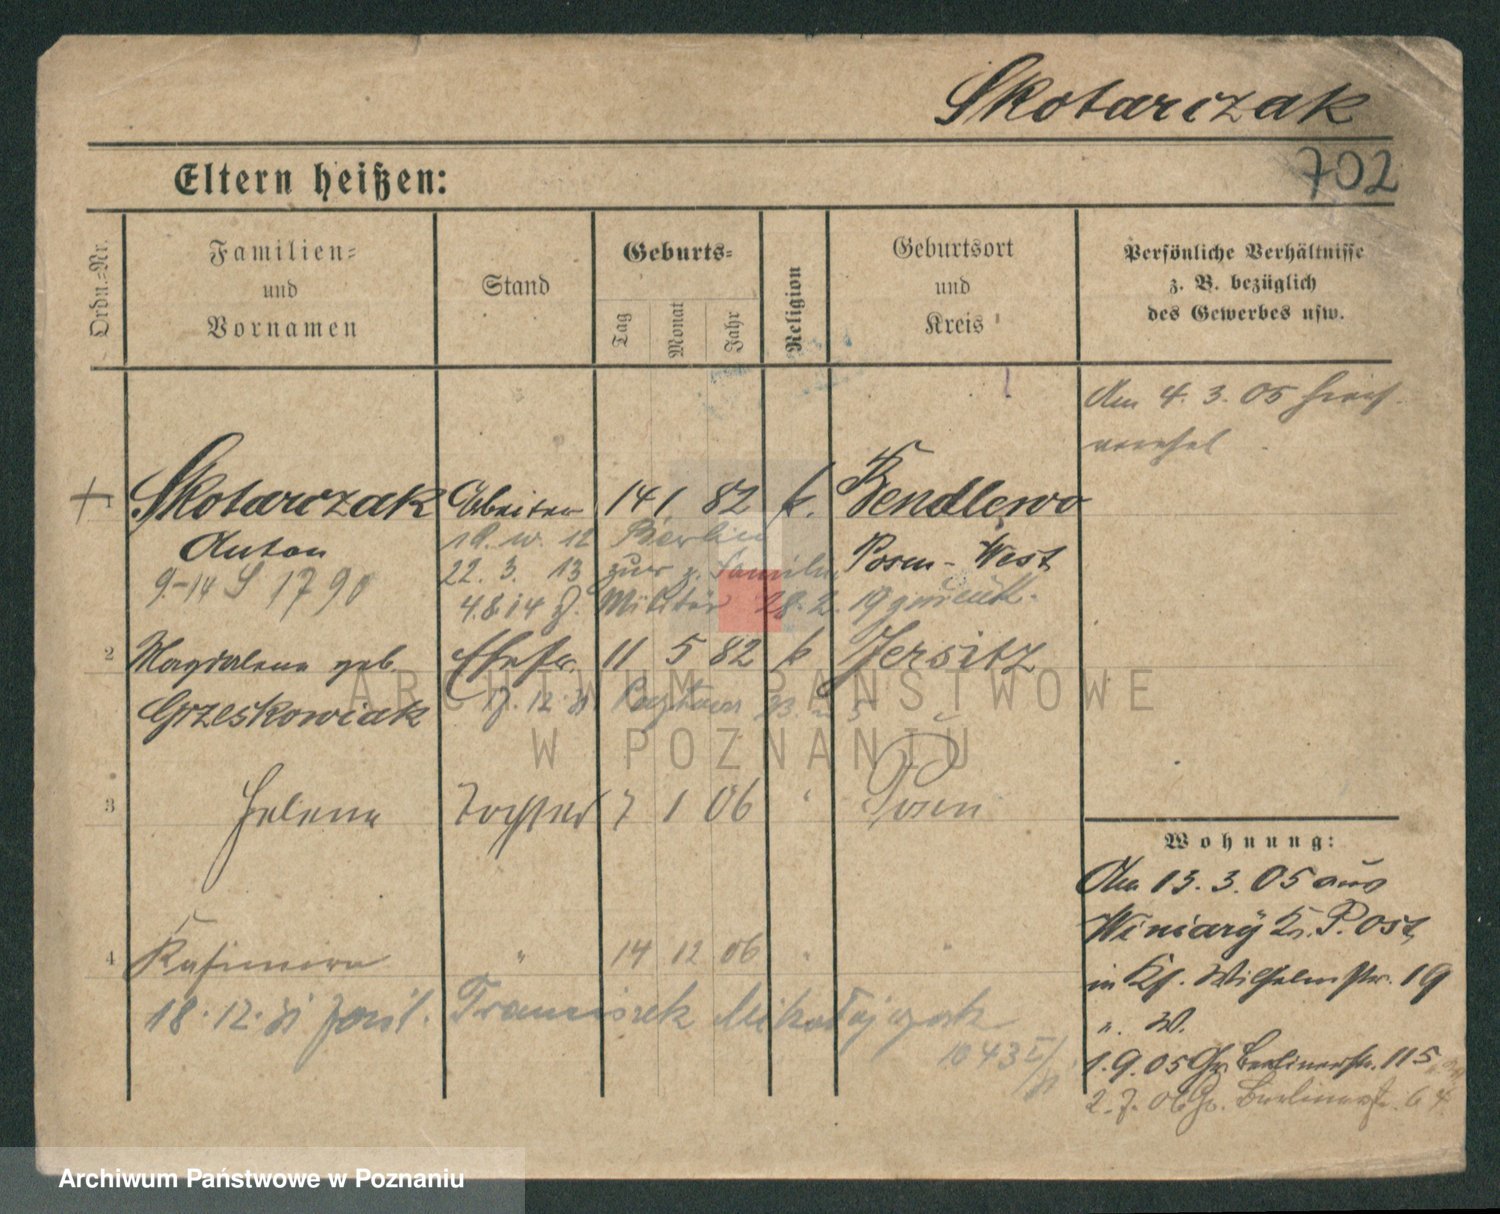 Skotarczak
702
Eltern heißen:
Ordn.-Nr.
Familien- und Vornamen
Stand
Geburts-
Tag
Monat
Jahr
Religion
Geburtsort und Kreis
Persönliche Verhältnisse z. B. bezüglich des Gewerbes usw.
Am 4. 3. 05
1 Skotarczak Arbeiter 14 1 82 k. Bendlewo
Anton Posen-West
9.-14 S 1790
18. w. 12 Berlin
22. 3. 13 zur z. Familie
4.8.14 z. Militär 28. 2. 19 zurück.
2 Magdalena geb. Ehefr. 11 5 82 k Jersitz
Grzeskowiak
3 Helena Tochter 7 1 06 " Posen
4 Kasimira " 14 12 06 " "
18. 12. Franciszek Mikołajczak
1043
Wohnung:
Am 13. 3. 05 aus
Winiary Kr. P. Ost,
in Kl. Wilhelmstr. 19
". W.
1. 9. 05 Gr. Berlinerstr. 115
2. 7. 06 Gr. Berlinerstr. 64
ARCHIWUM PAŃSTWOWE
W POZNANIU
Archiwum Państwowe w Poznaniu